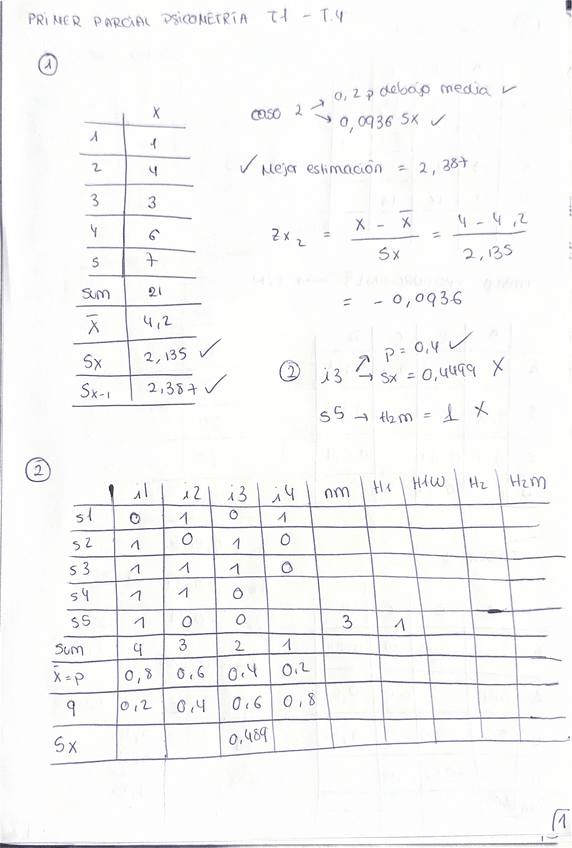 PRIMER PARCIAL PSICOMETRÍA T1 - T.4
1
X
1 1
2 4
3 3
4 6
5 7
Sum 21
X̄ 4,2
Sx 2,135 ✓
Sx-1 2,387 ✓
caso 2 → 0,2 p debajo media ✓
→ 0,0936 Sx ✓
✓ Mejor estimación = 2,387
Zx2 = X - X̄ / Sx = 4 - 4,2 / 2,135
= - 0,0936
2 i3 → p = 0,4 ✓
→ Sx = 0,4499 X
s5 → H2m = 1 X
2
i1 i2 i3 i4 nm H1 H1W H2 H2m
s1 0 1 0 1
s2 1 0 1 0
s3 1 1 1 0
s4 1 1 0
s5 1 0 0 3 1
Sum 4 3 2 1
X̄=p 0,8 0,6 0,4 0,2
q 0,2 0,4 0,6 0,8
Sx 0,489
1